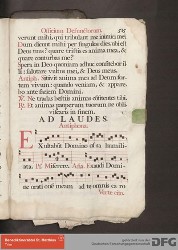 Officium Defunctorum.
verunt mihi, qui tribulant me inimici mei
Dum dicunt mihi per singulos dies: ubi est
Deus tuus? quare tristis es anima mea, &
quare conturbas me?
Spera in Deo quoniam adhuc confitebor il
li: salutare vultus mei, & Deus meus.
Antiph. Sitivit anima mea ad Deum
vivum: quando veniam, & appare
bo ante faciem Domini.
℣. Ne tradas bestiis animas confitentes tibi.
℞. Et animas pauperum tuorum ne obli
viscaris in finem.
AD LAUDES
Antiphona.
Exultabunt Domino ossa humili-
ata. Ps. Miserere. Aña. Exaudi Domi-
ne orati onem meam ad te omnis ca ro
DFG